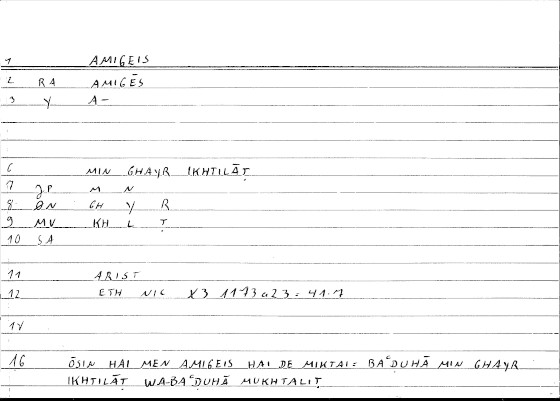 1 AMIGEIS
2 RA AMIGĒS
3 Y A-
6 MIN GHAYR IKHTILĀṬ
7 JP M N
8 ØN GH Y R
9 MV KH L Ṭ
10 SA
11 ARIST
12 ETH NIC X3 1173a23 = 41.7
14
16 ŌSIN HAI MEN AMIGEIS HAI DE MIKTAI = BAʿDUHĀ MIN GHAYR
IKHTILĀṬ WA-BAʿDUHĀ MUKHTALIṬ